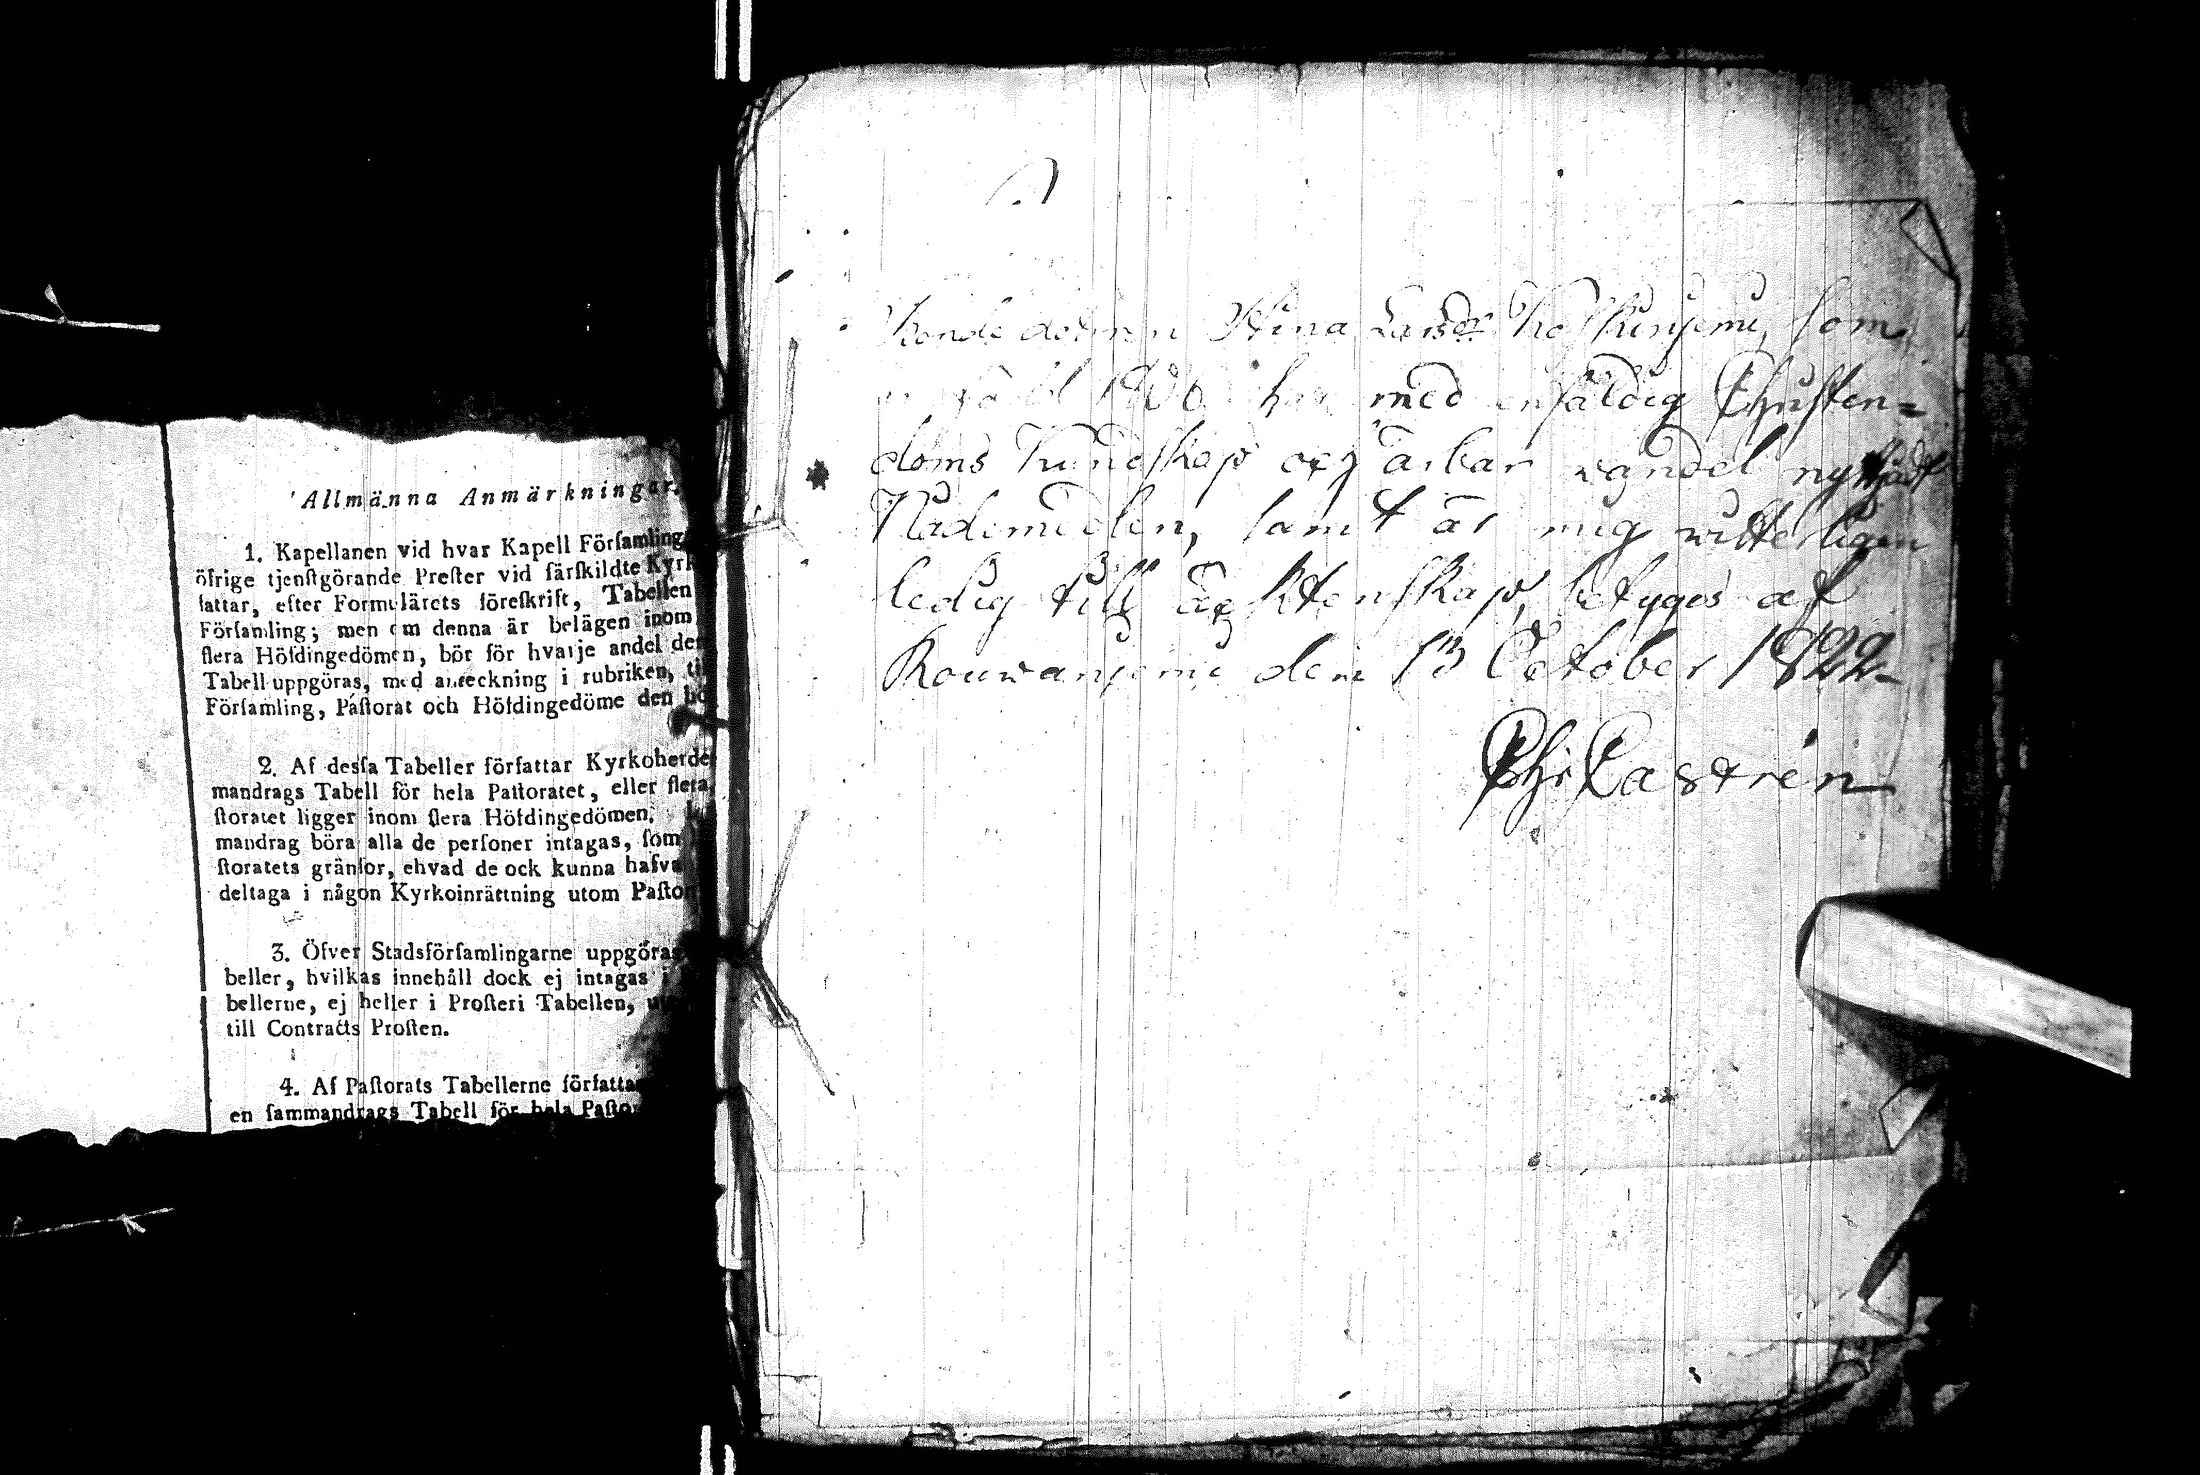 Allmänna Anmärkningar.
1. Kapellanen vid hvar Kapell Förſamling
öfrige tjenſtgörande Preſter vid färſkildte Kyrk
fattar, efter Formulärets föreſkrift, Tabellen
Förſamling; men om denna är belägen inom
flera Höfdingedömen, bör för hvarje andel der
Tabell uppgöras, med anteckning i rubriken, til
Förſamling, Paſtorat och Höfdingedöme den hö
2. Af desſa Tabeller författar Kyrkoherde
mandrags Tabell för hela Paſtoratet, eller flera
ſtoratet ligger inom flera Höfdingedömen.
mandrag böra alla de perſoner intagas, ſom
ſtoratets gränſor, ehvad de ock kunna hafva
deltaga i någon Kyrkoinrättning utom Paſtor
3. Öfver Stadsförſamlingarne uppgöras
beller, hvilkas innehåll dock ej intagas i
bellerne, ej heller i Proſteri Tabellen,
till Contracts Proſten.
4. Af Paſtorats Tabellerne författa
en ſammandrags Tabell för hela Paſto
Bonde dottren Stina Larsdr Koſkinjemi, ſom
1806 har med enfäldig Chriſten=
doms kundſkap och ärbar vandel nyttjadt
Nådemedlen, ſamt är mig witterligen
ledig till ächtenſkap, betygas af
Rouwanjemi den 13 October 1822
Chr Castrén